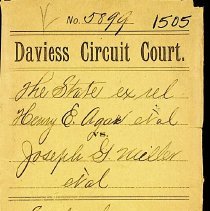 No. 5899 1505
Daviess Circuit Court.
The State ex rel
Henry E. Agar et al
vs.
Joseph G Miller
et al